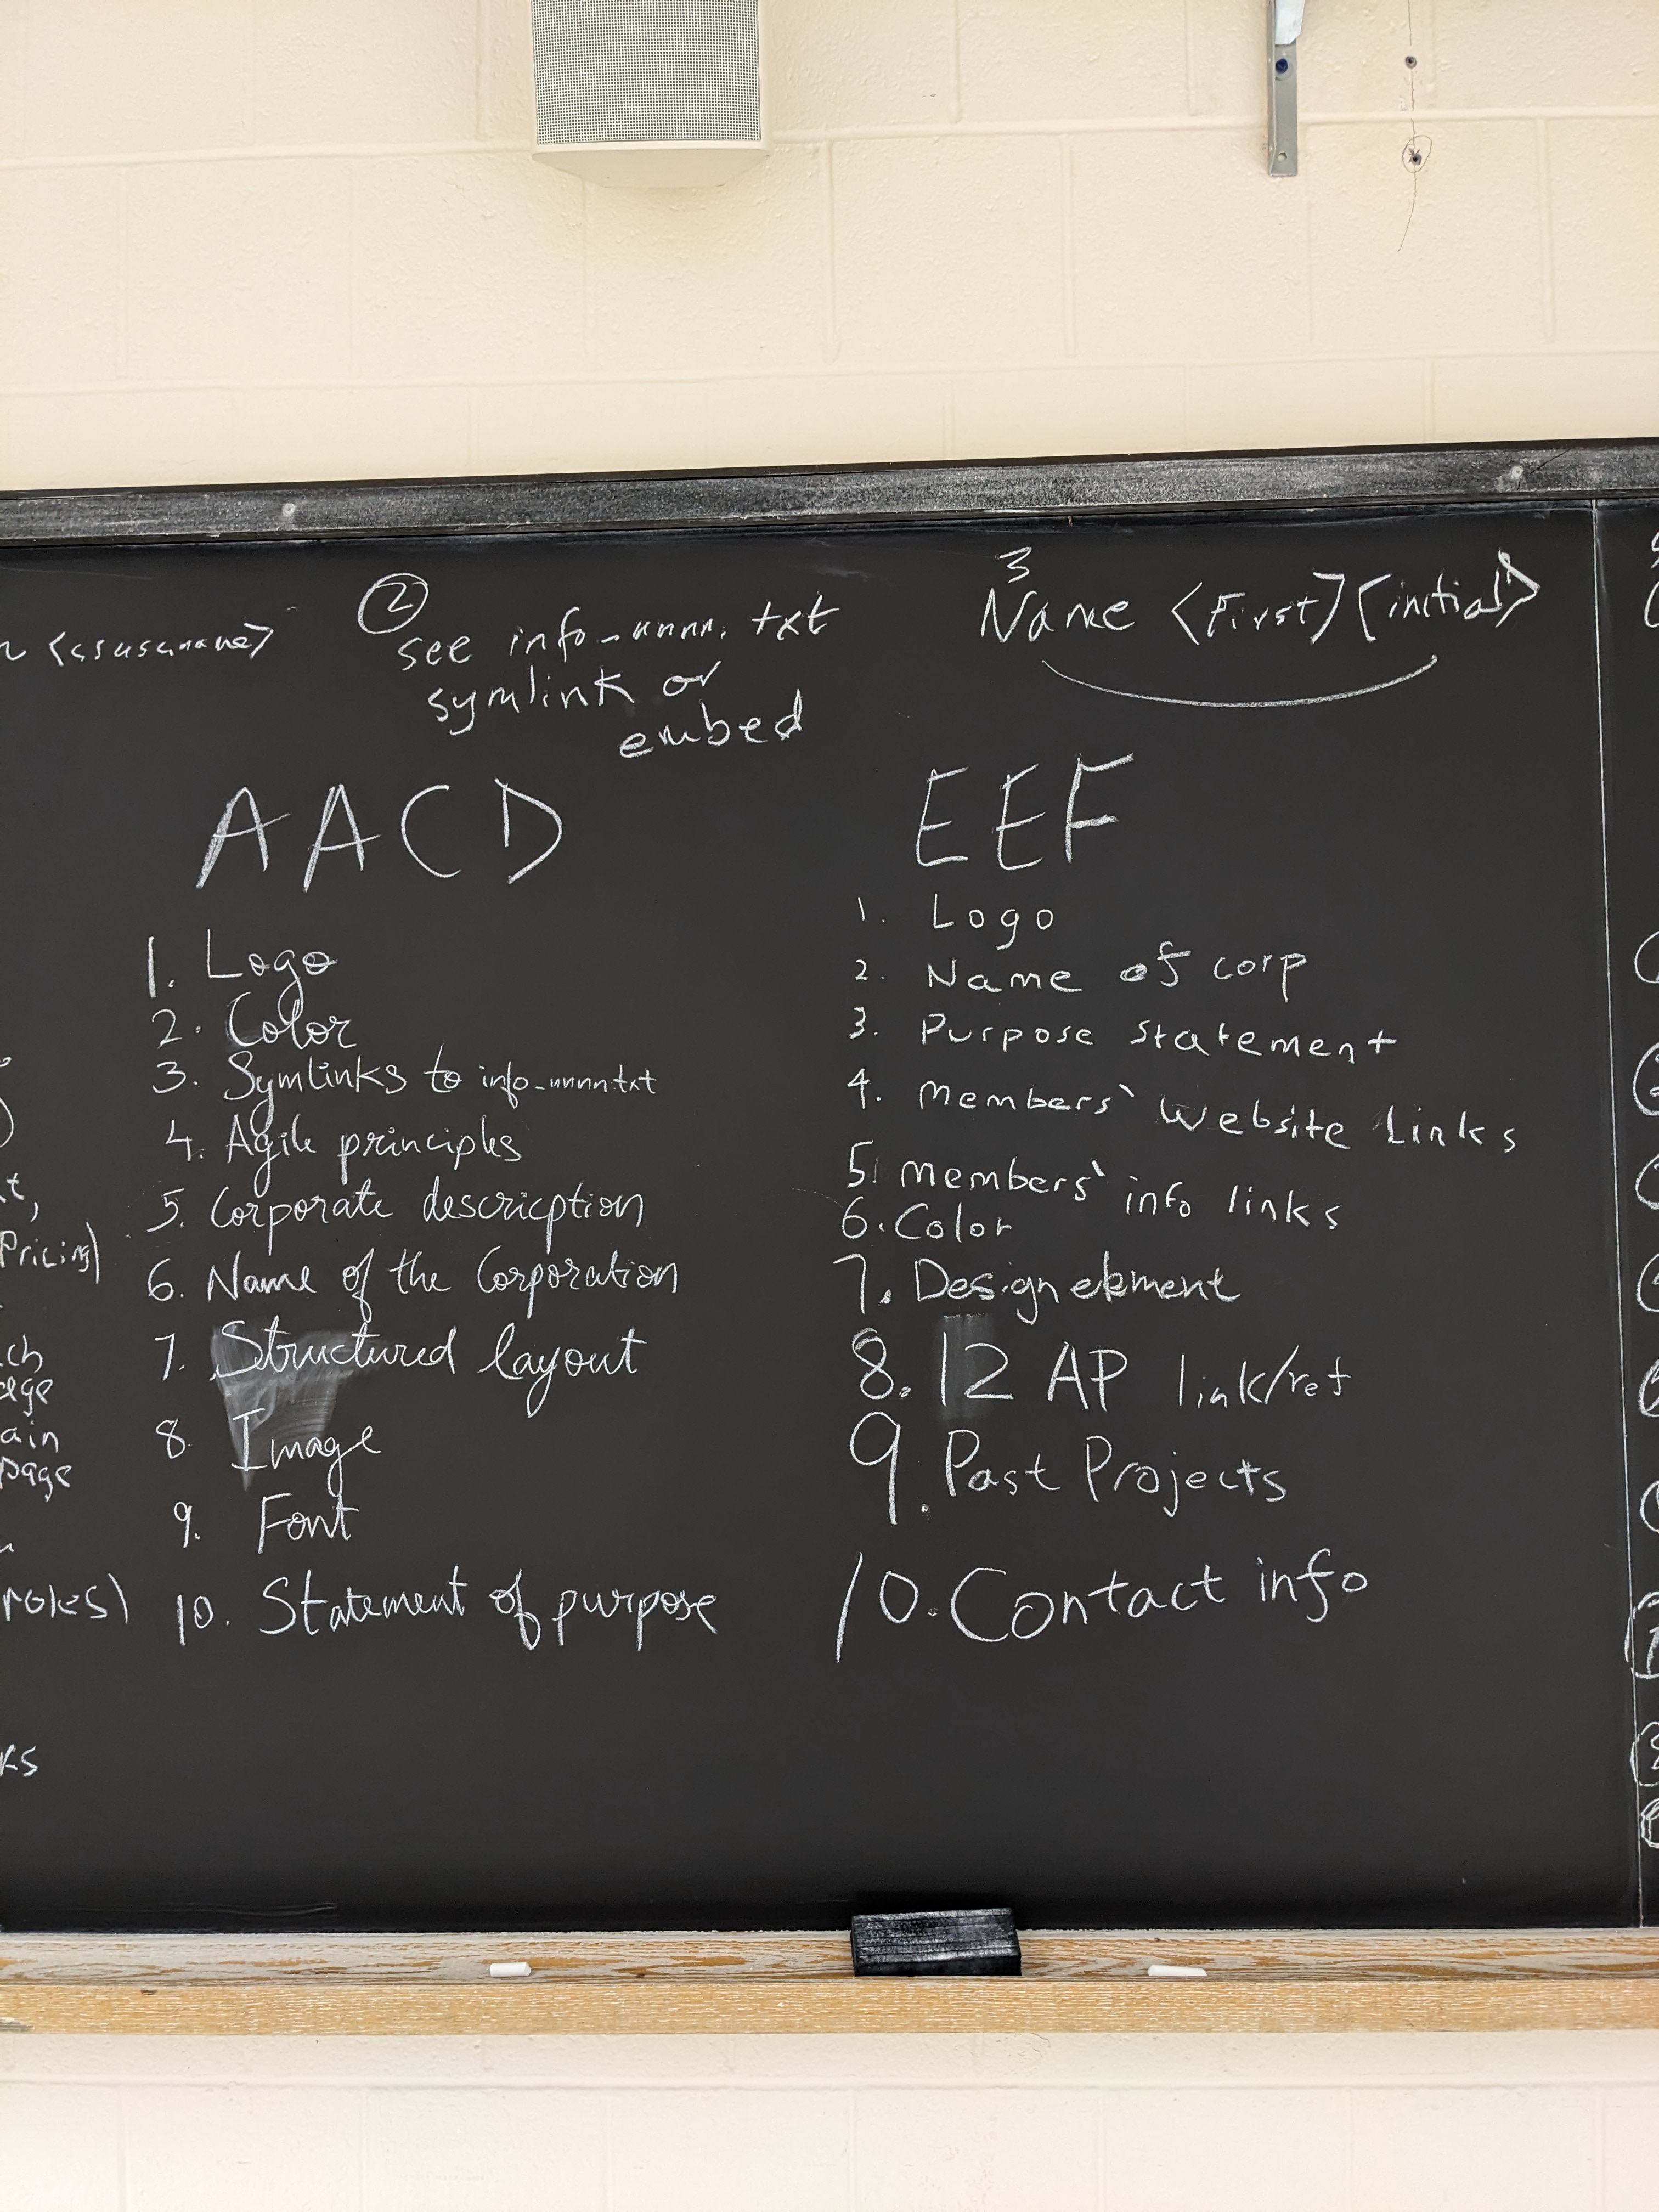 <csusername>
②
see info_nnnn.txt
symlink or
embed
3
Name <First>[initial>
AACD
1. Logo
2. Color
3. Symlinks to info_nnnn.txt
4. Agile principles
5. Corporate descricption
6. Name of the Corporation
7. Structured layout
8. Image
9. Font
10. Statement of purpose
EEF
1. Logo
2. Name of corp
3. Purpose statement
4. members' website links
5. members' info links
6. Color
7. Design element
8. 12 AP link/ref
9. Past Projects
10. Contact info
Pricing)
page
roles)